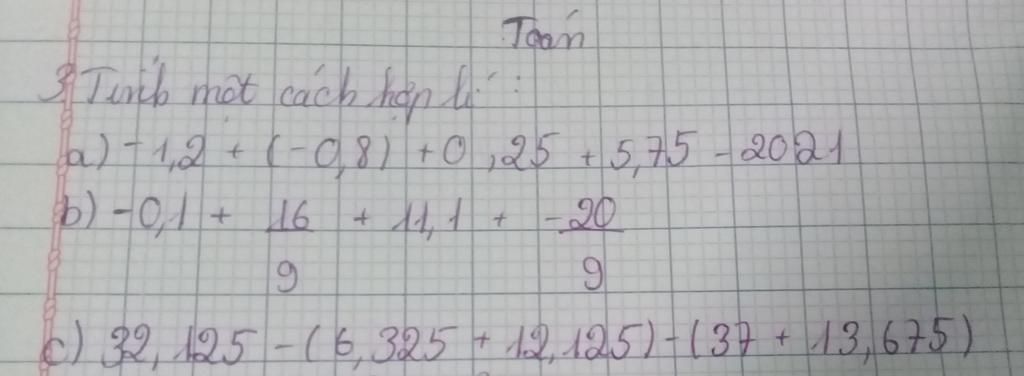 Toán
3 Tính một cách hợp lí :
a) -1,2 + (-0,8) + 0,25 + 5,75 - 2021
b) -0,1 + 16/9 + 11,1 + -20/9
c) 32,125 - (6,325 + 12,125) - (37 + 13,675)